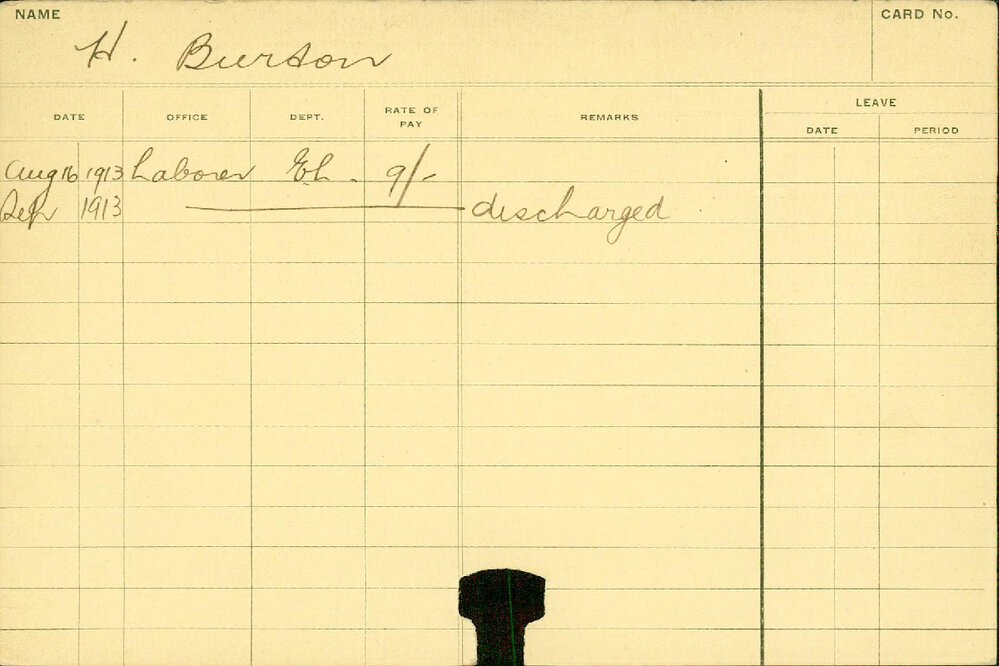 NAME CARD No.
H. Burton
LEAVE
DATE OFFICE DEPT. RATE OF PAY REMARKS DATE PERIOD
Aug 16 1913 Laborer 9/-
Sep 1913 discharged